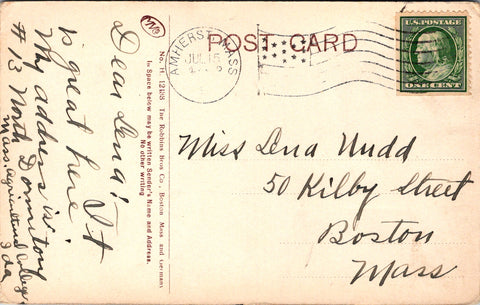 POST CARD
AMHERST, MASS
JUL 15
U.S. POSTAGE
ONE CENT
No. H. 12488 The Robbins Bros Co., Boston Mass and Germany
In Space below may be written Sender's Name and Address.
No other writing
Dear Lena! It
is great here.
My address is:
#13 North Dormitory
Mass. Agricultural College
Ida
Miss Lena Nudd
50 Kilby Street
Boston
Mass